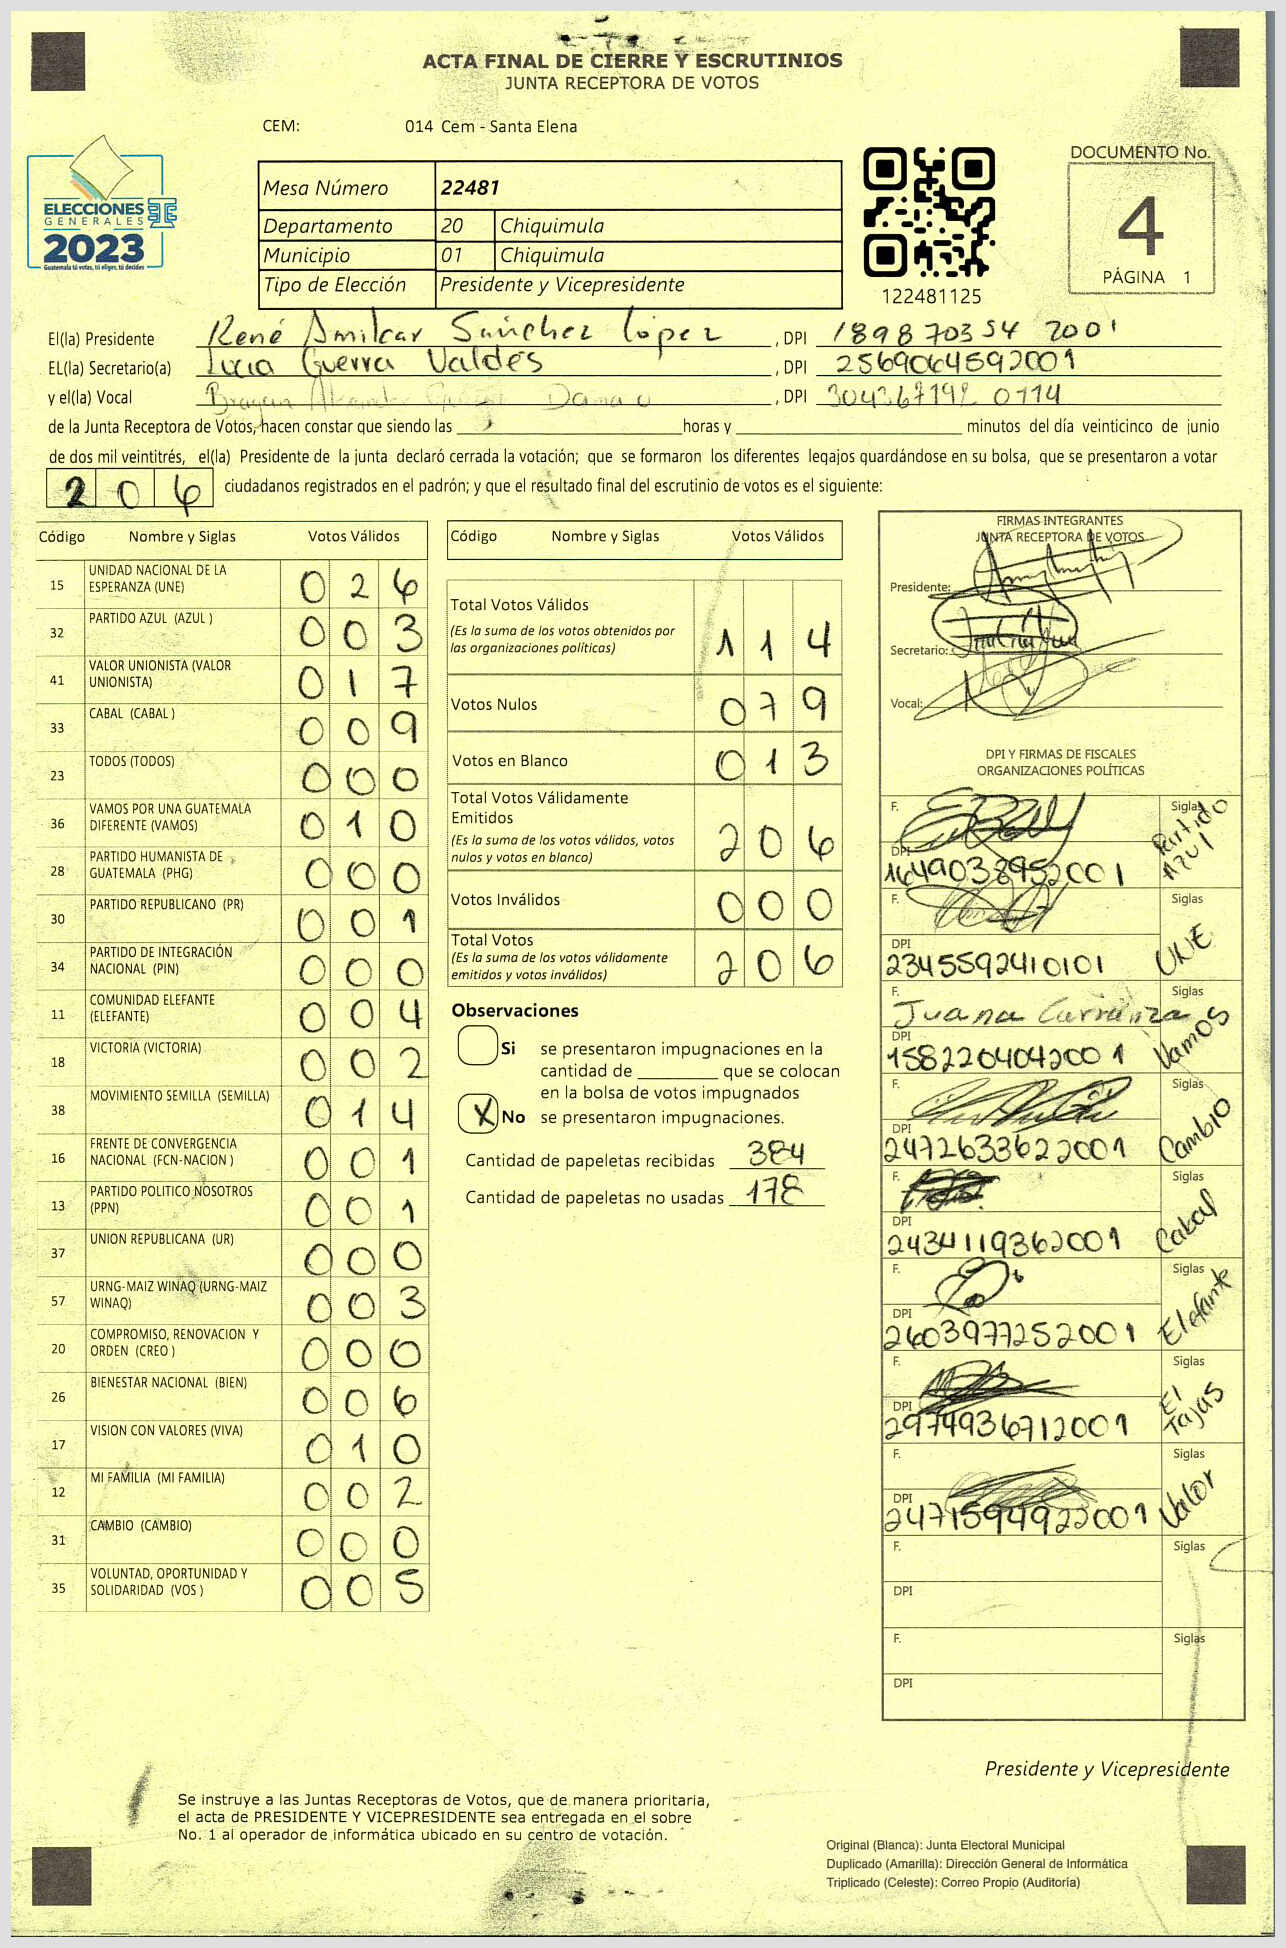 ACTA FINAL DE CIERRE Y ESCRUTINIOS
JUNTA RECEPTORA DE VOTOS
CEM: 014 Cem - Santa Elena
ELECCIONES
GENERALES
2023
Guatemala tú votas, tú eliges, tú decides
Mesa Número 22481
Departamento 20 Chiquimula
Municipio 01 Chiquimula
Tipo de Elección Presidente y Vicepresidente
122481125
DOCUMENTO No.
4
PÁGINA 1
El(la) Presidente René Amilcar Sánchez López, DPI 189870354 2001
EL(la) Secretario(a) Lucia Guerra Valdés, DPI 2569064592001
y el(la) Vocal , DPI 304367192 0114
de la Junta Receptora de Votos, hacen constar que siendo las horas y minutos del día veinticinco de junio
de dos mil veintitrés, el(la) Presidente de la junta declaró cerrada la votación; que se formaron los diferentes legajos guardándose en su bolsa, que se presentaron a votar
206 ciudadanos registrados en el padrón; y que el resultado final del escrutinio de votos es el siguiente:
Código Nombre y Siglas Votos Válidos
15 UNIDAD NACIONAL DE LA ESPERANZA (UNE) 026
32 PARTIDO AZUL (AZUL ) 003
41 VALOR UNIONISTA (VALOR UNIONISTA) 017
33 CABAL (CABAL ) 009
23 TODOS (TODOS) 000
36 VAMOS POR UNA GUATEMALA DIFERENTE (VAMOS) 010
28 PARTIDO HUMANISTA DE GUATEMALA (PHG) 000
30 PARTIDO REPUBLICANO (PR) 001
34 PARTIDO DE INTEGRACIÓN NACIONAL (PIN) 000
11 COMUNIDAD ELEFANTE (ELEFANTE) 004
18 VICTORIA (VICTORIA) 002
38 MOVIMIENTO SEMILLA (SEMILLA) 014
16 FRENTE DE CONVERGENCIA NACIONAL (FCN-NACION ) 001
13 PARTIDO POLITICO NOSOTROS (PPN) 001
37 UNION REPUBLICANA (UR) 000
57 URNG-MAIZ WINAQ (URNG-MAIZ WINAQ) 003
20 COMPROMISO, RENOVACION Y ORDEN (CREO ) 000
26 BIENESTAR NACIONAL (BIEN) 006
17 VISION CON VALORES (VIVA) 010
12 MI FAMILIA (MI FAMILIA) 002
31 CAMBIO (CAMBIO) 000
35 VOLUNTAD, OPORTUNIDAD Y SOLIDARIDAD (VOS ) 005
Código Nombre y Siglas Votos Válidos
Total Votos Válidos
(Es la suma de los votos obtenidos por
las organizaciones políticas) 114
Votos Nulos 079
Votos en Blanco 013
Total Votos Válidamente
Emitidos
(Es la suma de los votos válidos, votos
nulos y votos en blanco) 206
Votos Inválidos 000
Total Votos
(Es la suma de los votos válidamente
emitidos y votos inválidos) 206
Observaciones
Si se presentaron impugnaciones en la
cantidad de que se colocan
en la bolsa de votos impugnados
X No se presentaron impugnaciones.
Cantidad de papeletas recibidas 384
Cantidad de papeletas no usadas 178
FIRMAS INTEGRANTES
JUNTA RECEPTORA DE VOTOS
Presidente:
Secretario:
Vocal:
DPI Y FIRMAS DE FISCALES
ORGANIZACIONES POLÍTICAS
F. Siglas Partido Azul
DPI 1649038952001
F. Siglas UNE
DPI 2345592410101
F. Juana Carranza Siglas Vamos
DPI 1582204042001
F. Siglas Cambio
DPI 2472633622001
F. Siglas Cabal
DPI 2434119362001
F. Siglas Elefante
DPI 2603977252001
F. Siglas El Tajas
DPI 2974936712001
F. Siglas Valor
DPI 2471594922001
F. Siglas
DPI
F. Siglas
DPI
Presidente y Vicepresidente
Se instruye a las Juntas Receptoras de Votos, que de manera prioritaria,
el acta de PRESIDENTE Y VICEPRESIDENTE sea entregada en el sobre
No. 1 al operador de informática ubicado en su centro de votación.
Original (Blanca): Junta Electoral Municipal
Duplicado (Amarilla): Dirección General de Informática
Triplicado (Celeste): Correo Propio (Auditoría)